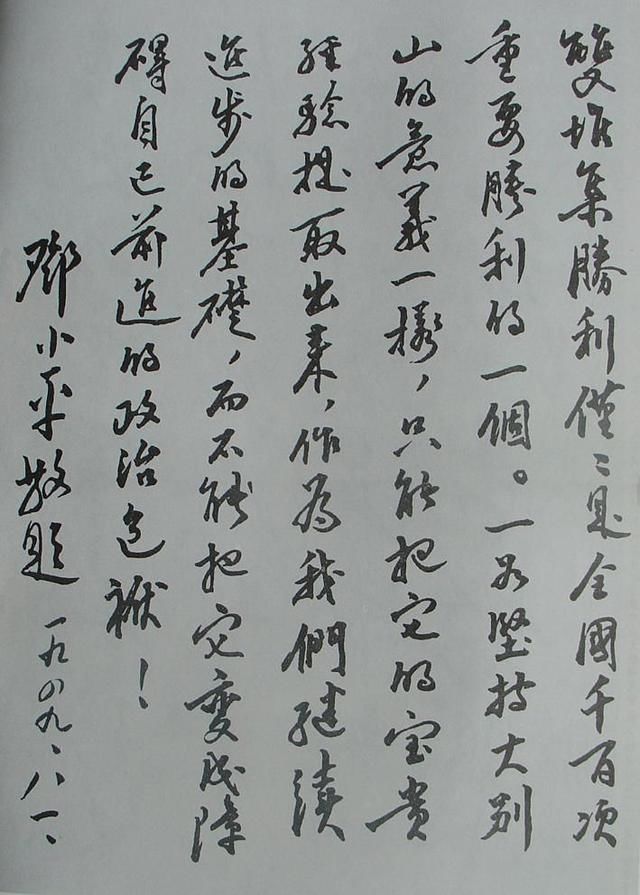 雙堆集勝利僅〻是全國千百项
重要勝利的一個。一如堅持大别
山的意義一樣，只能把它的宝贵
经驗提取出来，作為我們继續
進步的基礎，而不能把它变成障
碍自己前進的政治包袱！
鄧小平敬題 一九四九、八、一、